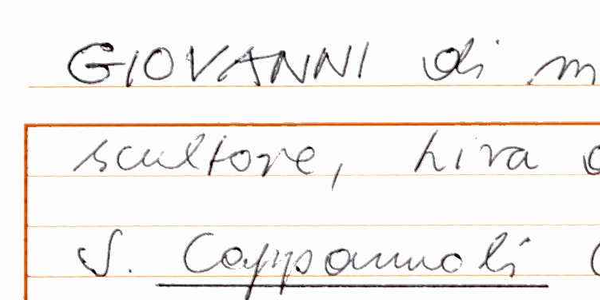 GIOVANNI di m
scultore,
S. Cappannoli (